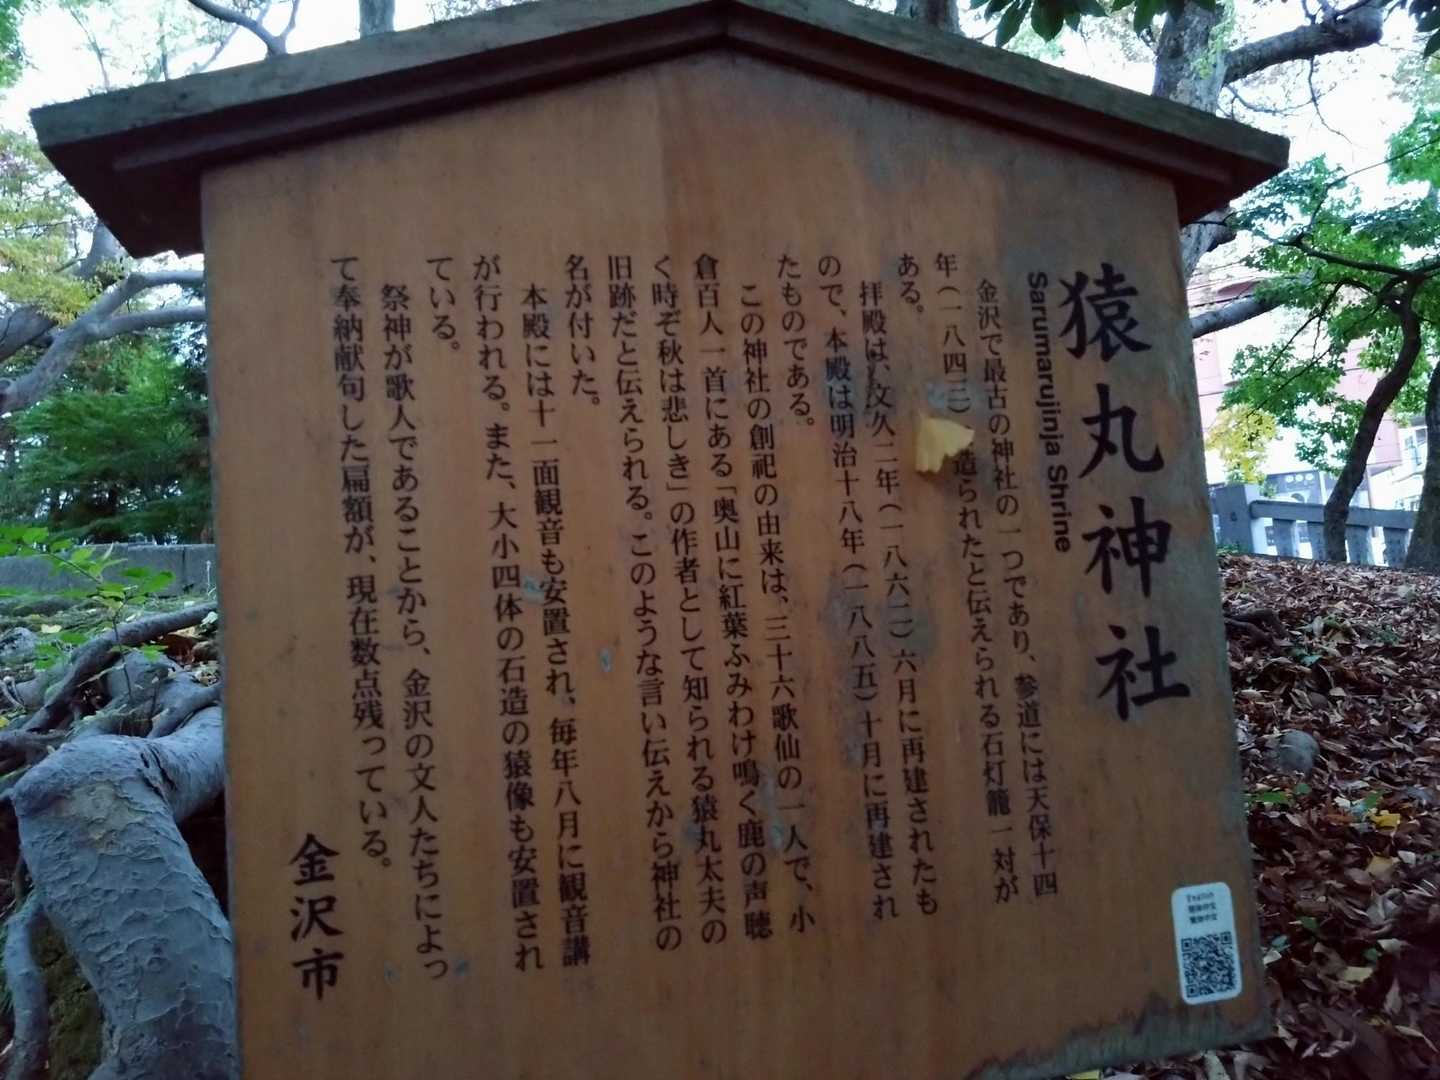 猿丸神社
Sarumarujinja Shrine
金沢で最古の神社の一つであり、参道には天保十四
年（一八四三）造られたと伝えられる石灯籠一対が
ある。
拝殿は、文久二年（一八六二）六月に再建されたも
ので、本殿は明治十八年（一八八五）十月に再建され
たものである。
この神社の創祀の由来は、三十六歌仙の一人で、小
倉百人一首にある「奥山に紅葉ふみわけ鳴く鹿の声聴
く時ぞ秋は悲しき」の作者として知られる猿丸太夫の
旧跡だと伝えられる。このような言い伝えから神社の
名が付いた。
本殿には十一面観音も安置され、毎年八月に観音講
が行われる。また、大小四体の石造の猿像も安置され
ている。
祭神が歌人であることから、金沢の文人たちによっ
て奉納献句した扁額が、現在数点残っている。
金沢市
English
简体中文
繁體中文